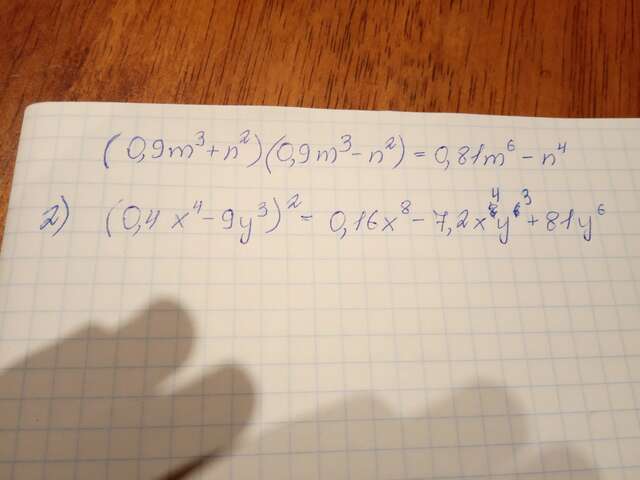 (0,9m³+n²)(0,9m³-n²)=0,81m⁶-n⁴
2) (0,4x⁴-9y³)²=0,16x⁸-7,2x⁴y³+81y⁶